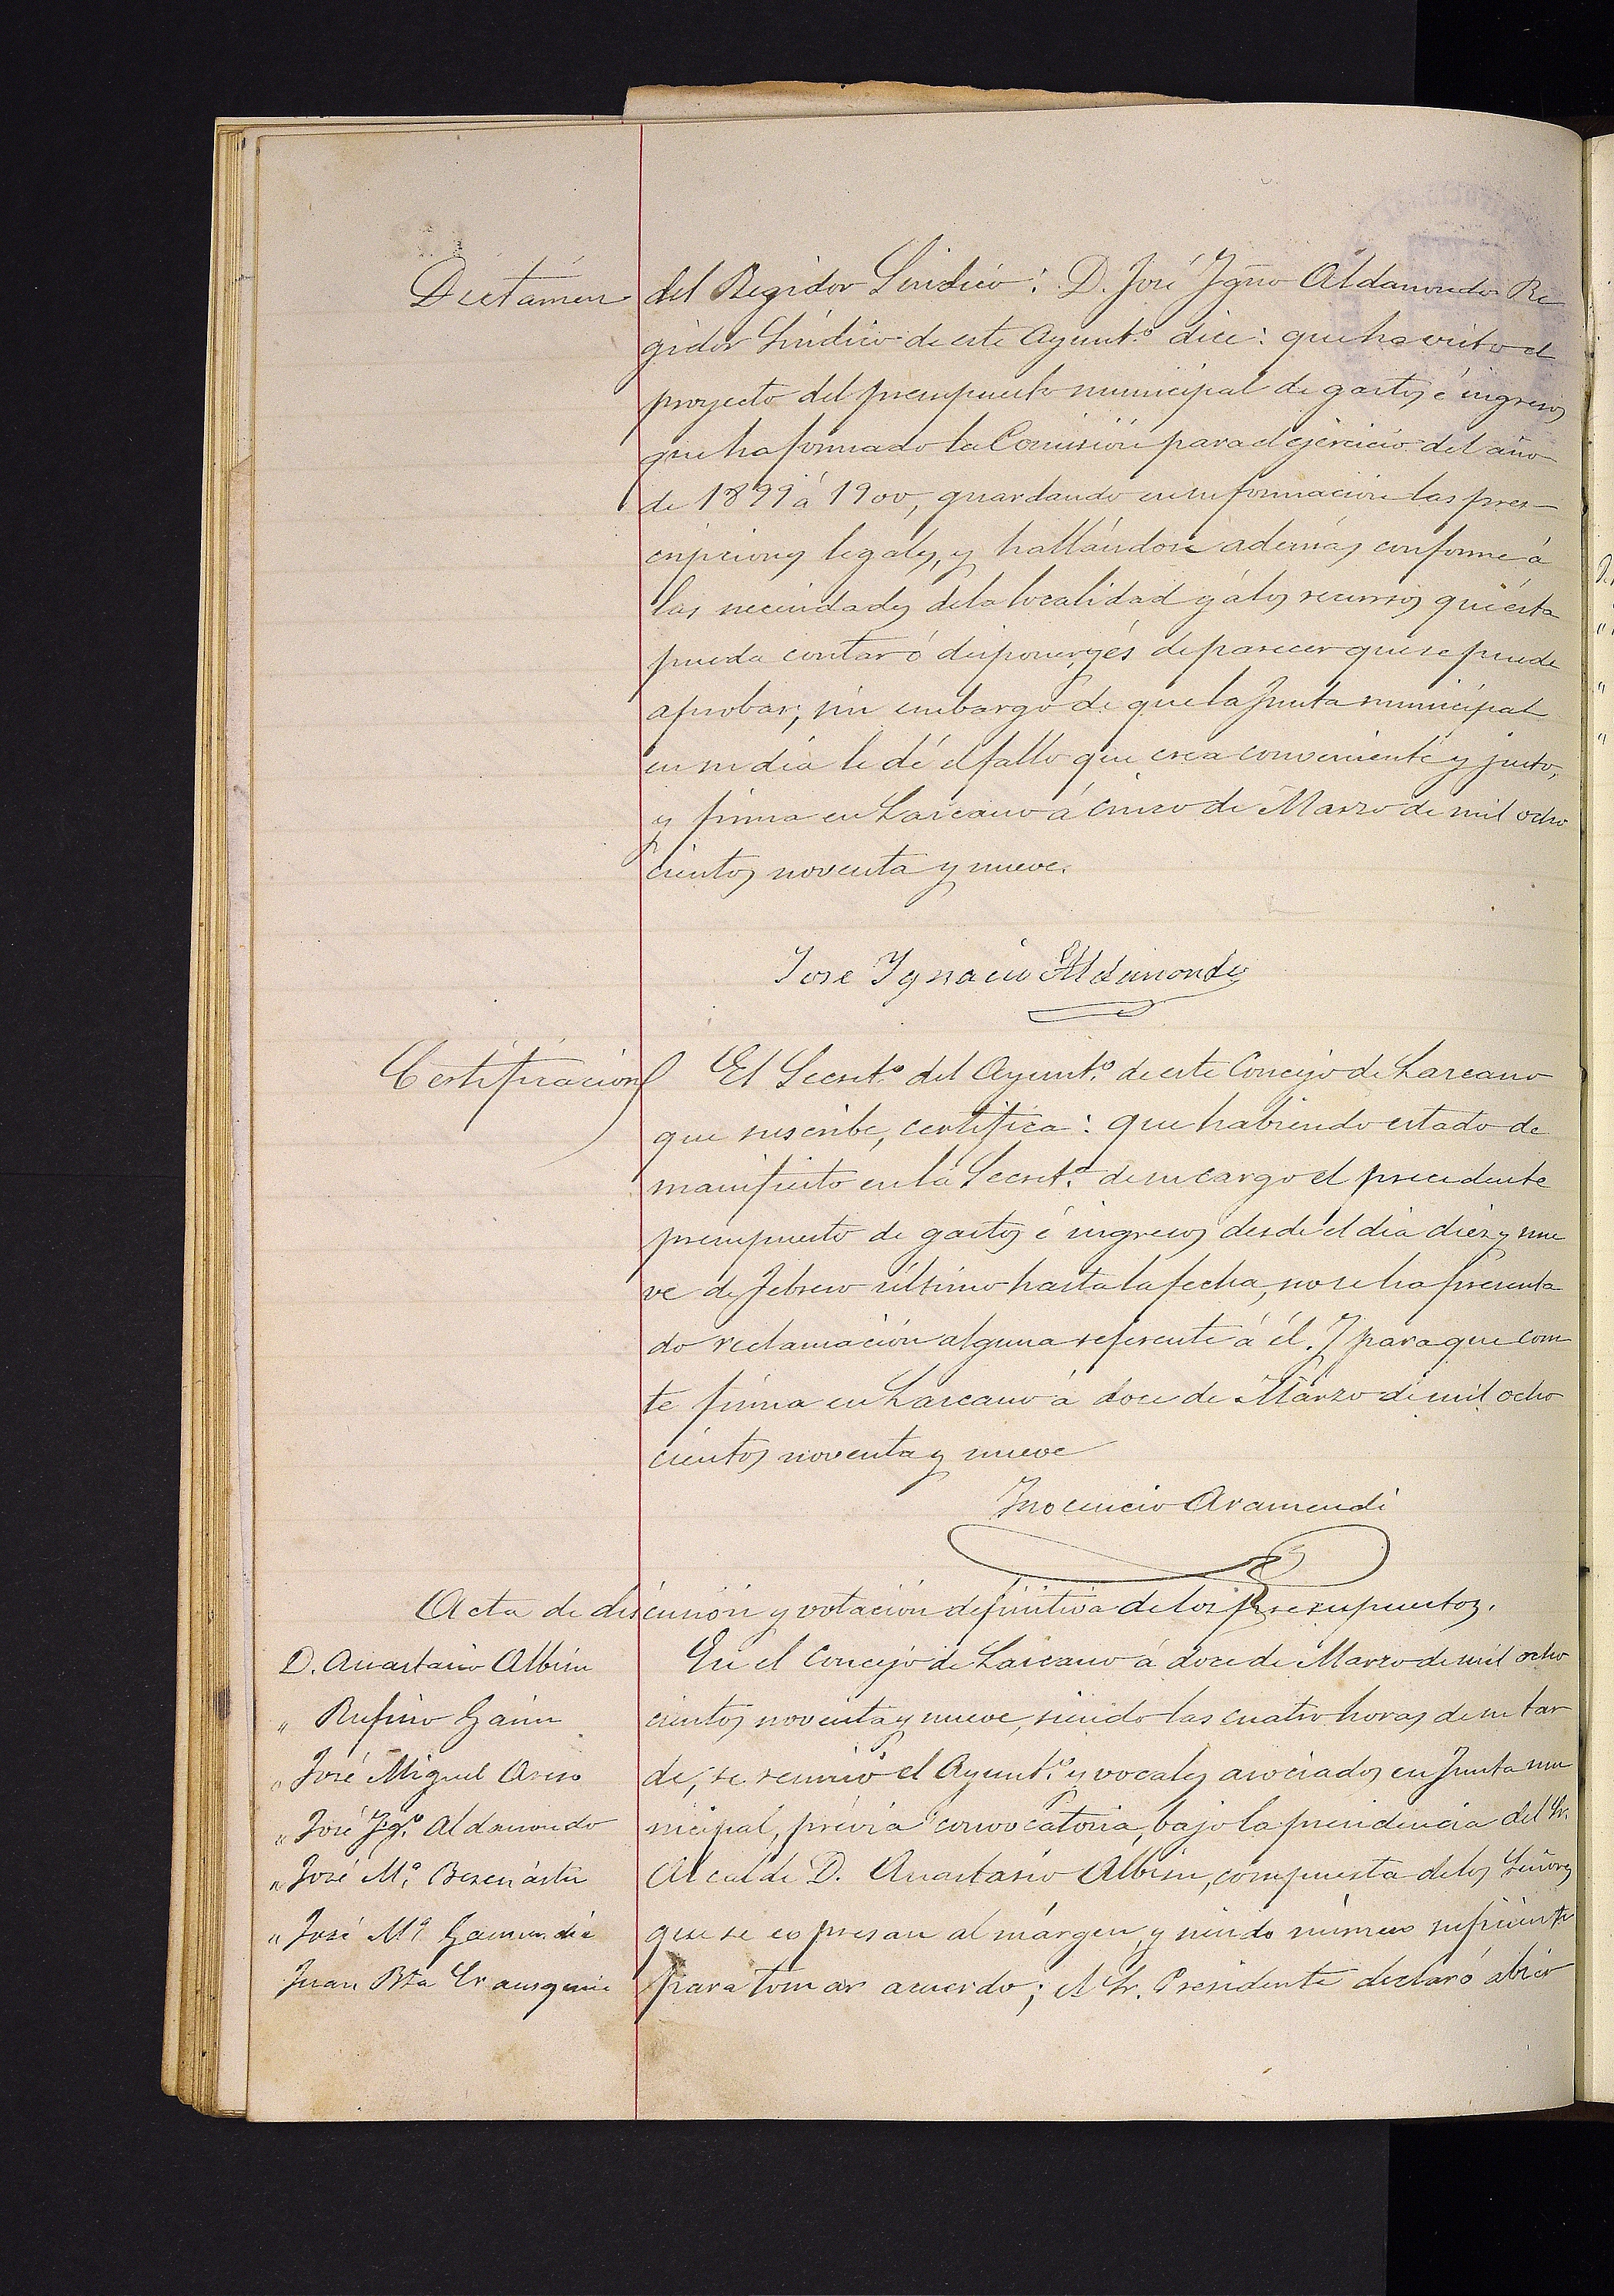 Dictámen del Regidor Síndico: D. José Ygno Aldamondo Re
gidor Síndico de este Ayuntº dice: que ha visto el
proyecto del presupuesto municipal de gastos é ingresos
que ha formado la Comisión para el ejercicio del año
de 1899 á 1900, guardando en su formación las pres-
cripciones legales, y hallándose además conforme á
las necesidades de la localidad y á los recursos que ésta
pueda contar ó disponer, y és de parecer que se puede
aprobar; sin embargo de que la Junta municipal
en su dia le dé el fallo que crea conveniente y justo,
y firma en Lazcano á cinco de Marzo de mil ocho
cientos noventa y nueve.
Jose Ygnacio Aldamondo
Certificación El Secretº del Ayuntº de este Concejo de Lazcano
que suscribe, certifica: que habiendo estado de
manifiesto en la Secretª de su cargo el precedente
presupuesto de gastos é ingresos desde el dia diez y nue
ve de febrero último hasta la fecha, no se ha presenta
do reclamación alguna referente á él. Y para que cons
te firma en Lazcano á doce de Marzo de mil ocho
cientos noventa y nueve
Inocencio Aramendi
Acta de discusión y votación definitiva de los presupuestos.
D. Anastasio Albisu
" Rufino Gainz
" José Miguel Areso
" José Ygº Aldamondo
" José Mª Berenástu
" José Mª Gamindia
Juan Bta Irausquin
En el Concejo de Lazcano á doce de Marzo de mil ocho
cientos noventa y nueve, siendo las cuatro horas de su tar
de, se reunió el Ayuntº y vocales asociados en Junta mu
nicipal, prévia convocatoria, bajo la presidencia del Sr.
Alcalde D. Anastasio Albisu, compuesta de los Señores
que se expresan al márgen, y siendo número suficiente
para tomar acuerdo; el Sr. Presidente declaró abier